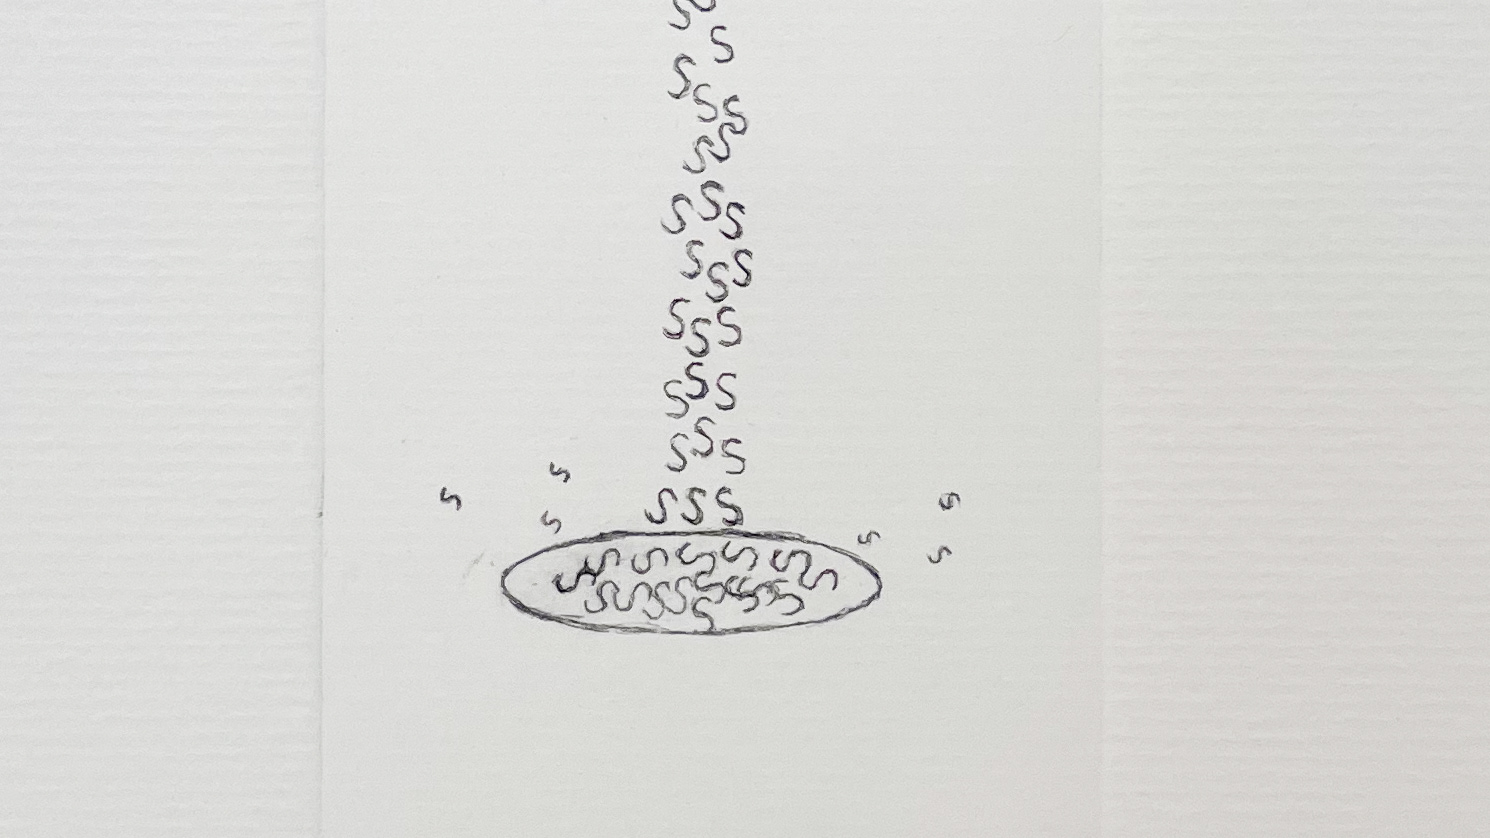 S
S
S
S S
S
S
S S
S
S
S
S S
S
S S
S
S
S S
S
S
S S
S
S
S S S S
S S
S S S
S
S S S S S S
S S
S S S S S S S S S S
S